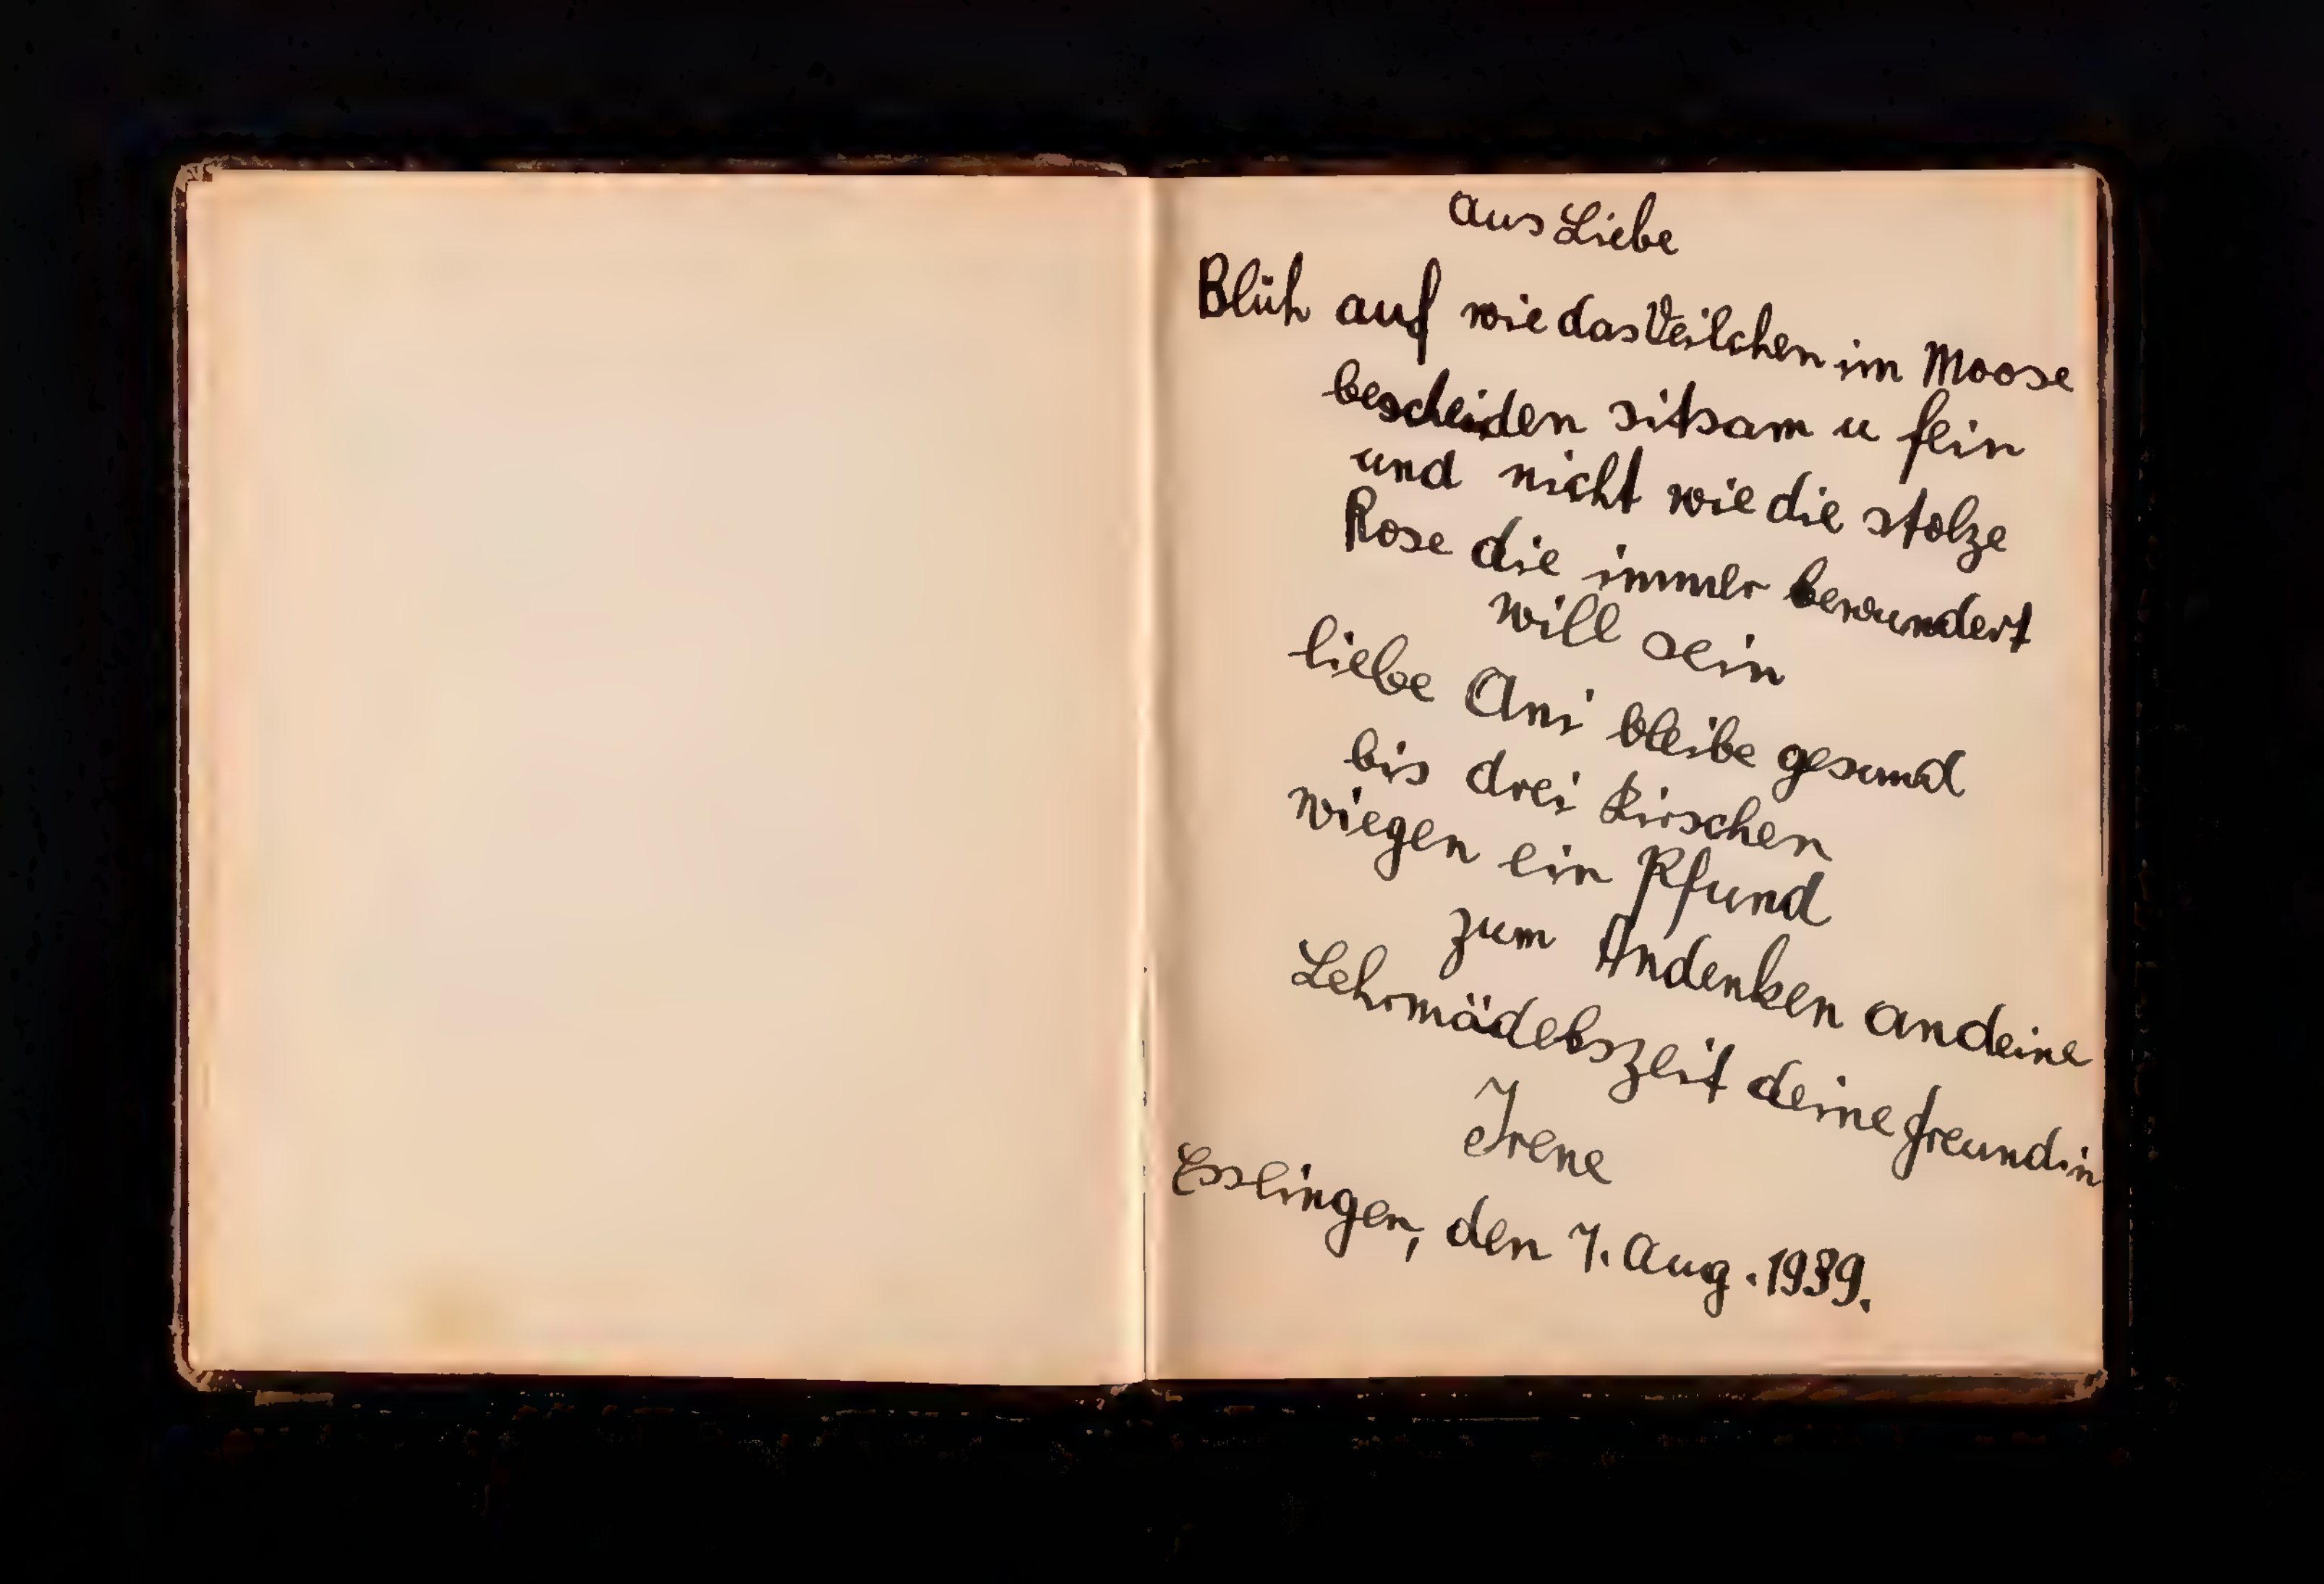 aus Liebe
Blüh auf wie das Veilchen im Moose
bescheiden sitsam u fein
und nicht wie die stolze
Rose die immer bewundert
will sein
liebe Ani bleibe gesund
bis drei Kirschen
wiegen ein Pfund
zum Andenken an deine
Lehrmädelszeit deine freundin
Irene
Esslingen, den 7. Aug. 1939.